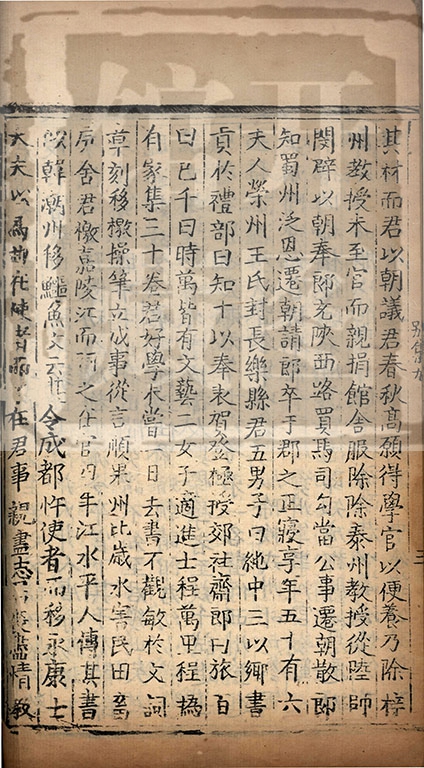 其材而君以朝議君春秋高願得學官以便養乃除梓
州教授未至官而親捐館舍服除除秦州教授從陸師
閔辟以朝奉郎充陜西路買馬司勾當公事遷朝散郎
知蜀州泛恩遷朝請郎卒于郡之正寢享年五十有六
夫人榮州王氏封長樂縣君五男子曰純中三以鄉書
貢於禮部曰知十以奉表賀登極授郊社齋郎曰旅百
曰巳千曰時萬皆有文藝二女子適進士程萬里程楊
有家集三十卷君好學未嘗一日去書不觀敏於文詞
草刻移檄操筆立成事從言順果州比歲水害民田畜
廬舍君檄嘉陵江而
之任官
年江水平人傳其書
以韓潮州移鱷魚文云
令成都忤使者而移永康士
大夫以為
社使者
在君事親盡志
盡情敎